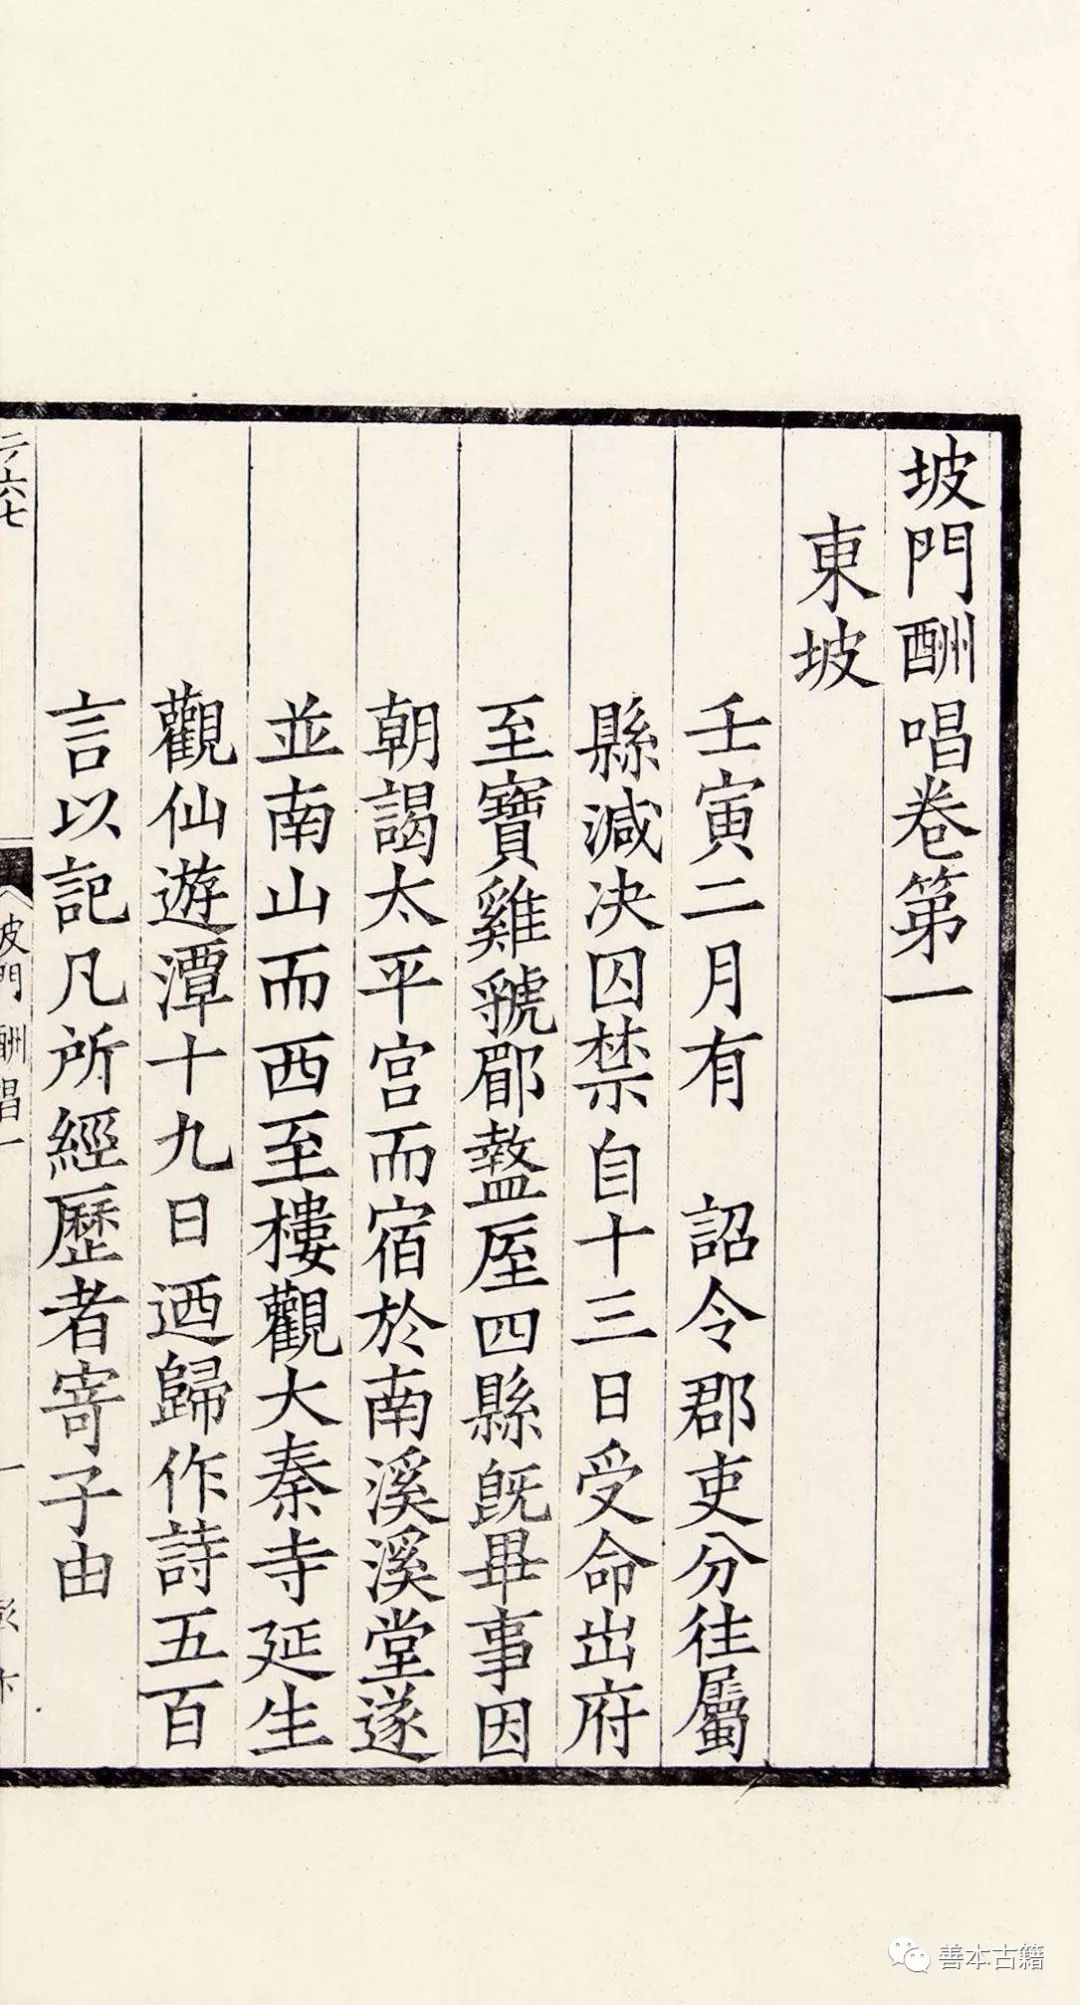 坡門酬唱卷第一
東坡
壬寅二月有　詔令郡吏分往屬
縣減决囚禁自十三日受命出府
至寶雞虢郿盩厔四縣既畢事因
朝謁太平宮而宿於南溪溪堂遂
並南山而西至樓觀大秦寺延生
觀仙遊潭十九日迺歸作詩五百
言以記凡所經歷者寄子由
二丁六七
坡門酬唱一
一
善本古籍